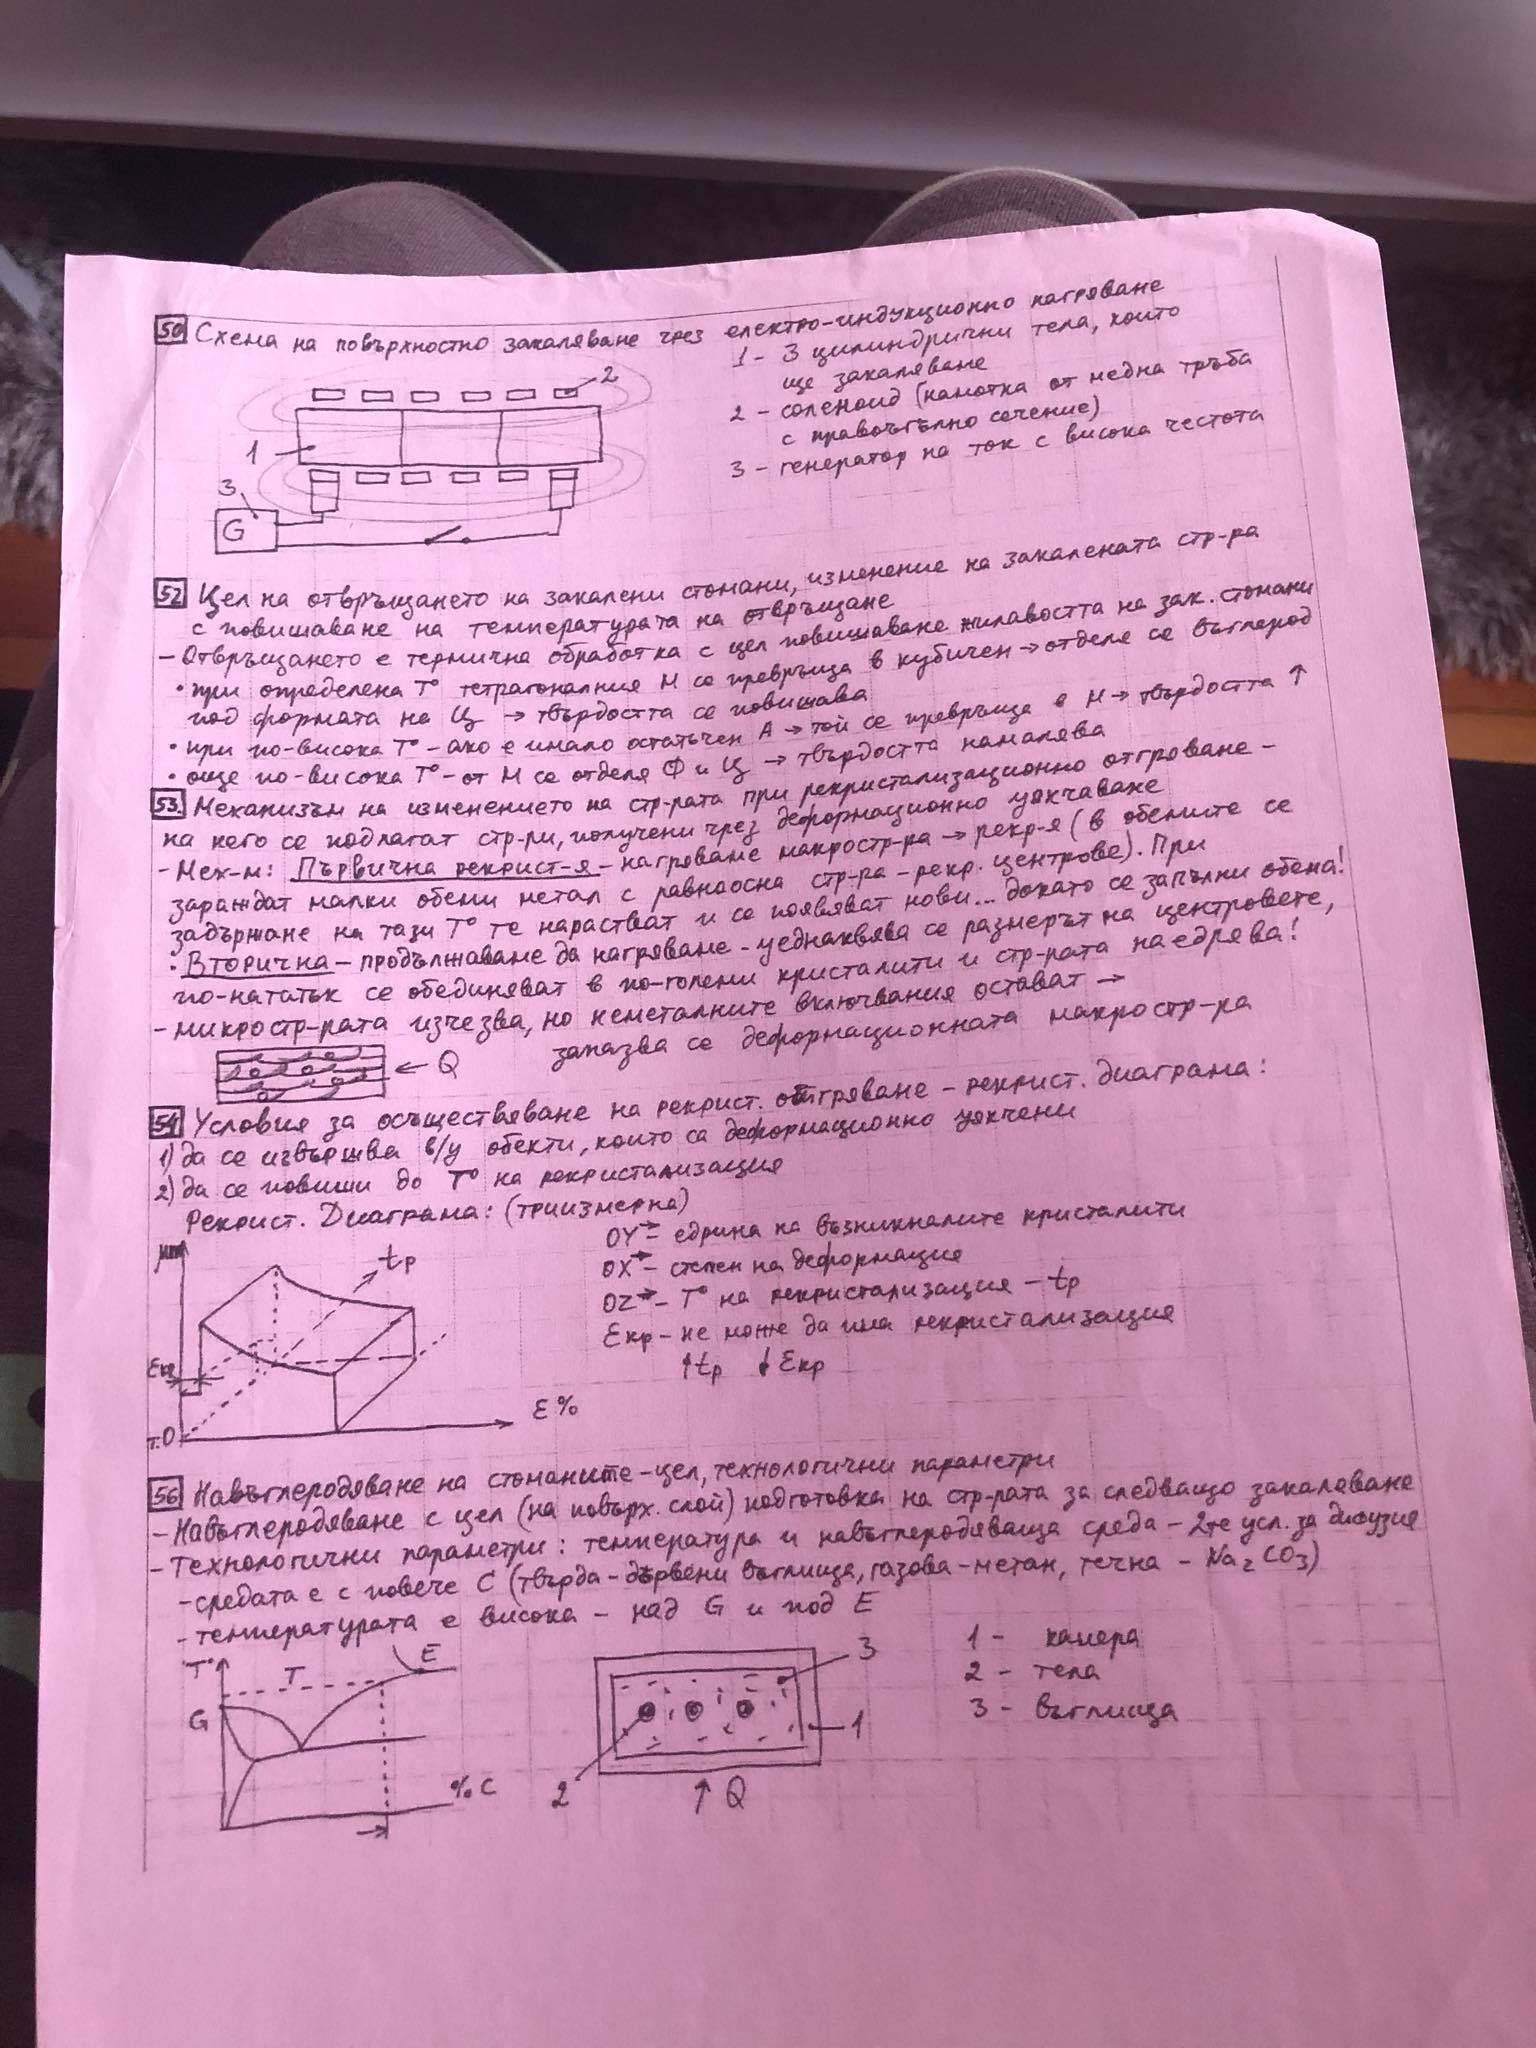 50 Схема на повърхностно закаляване чрез електро-индукционно нагряване
1 - 3 цилиндрични тела, които
ще закаляване
2 - соленоид (намотка от медна тръба
с правоъгълно сечение)
3 - генератор на ток с висока честота
2
1
3
G
52 Цел на отвръщането на закалени стомани, изменение на закалената стр-ра
с повишаване на температурата на отвръщане
- Отвръщането е термична обработка с цел повишаване жилавостта на зак. стомани
• при определена T° тетрагоналния М се превръща в кубичен → отделя се въглерод
под формата на Ц → твърдостта се повишава
• при по-висока T° - ако е имало остатъчен А → той се превръща в М → твърдостта ↑
• още по-висока T° - от М се отделя Ф и Ц → твърдостта намалява
53. Механизъм на изменението на стр-рата при рекристализационно отгряване -
на него се подлагат стр-ри, получени чрез деформационно уякчаване
- Мех-м: Първична рекрист-я - нагряваме макростр-ра → рекр-я (в обемите се
зараждат малки обеми метал с равноосна стр-ра - рекр. центрове). При
задържане на тази T° те нарастват и се появяват нови... докато се запълни обема!
• Вторична - продължаваме да нагряваме - уеднаквява се размерът на центровете,
по-нататък се обединяват в по-големи кристалити и стр-рата наедрява!
- микростр-рата изчезва, но неметалните включвания остават →
запазва се деформационната макростр-ра
← Q
54 Условия за осъществяване на рекрист. отгряване - рекрист. диаграма:
1) да се извършва в/у обекти, които са деформационно уякчени
2) да се повиши до T° на рекристализация
Рекрист. Диаграма: (триизмерна)
OY→ - едрина на възникналите кристалити
OX→ - степен на деформация
OZ→ - T° на рекристализация - tр
Eкр - не може да има рекристализация
↑tр ↓Eкр
μm
tр
Eкр
т.O
E%
56 Навъглеродяване на стоманите - цел, технологични параметри
- Навъглеродяване с цел (на повърх. слой) подготовка на стр-рата за следващо закаляване
- Технологични параметри: температура и навъглеродяваща среда - 2те усл. за дифузия
- средата е с повече C (твърда - дървени въглища, газова - метан, течна - Na2CO3)
- температурата е висока - над G и под E
T°
T
E
G
% C
3
1
2
↑ Q
1 - камера
2 - тела
3 - въглища